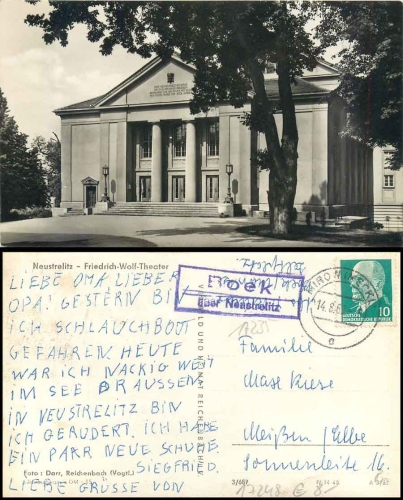 Neustrelitz - Friedrich-Wolf-Theater
LIEBE OMA, LIEBER
OPA! GESTERN BIN
ICH SCHLAUCHBOOT
GEFAHREN. HEUTE
WAR ICH NACKIG WEIT
IM SEE DRAUSSEN.
IN NEUSTRELITZ BIN
ICH GERUDERT. ICH HABE
EIN PAAR NEUE SCHUHE.
SIEGFRIED.
LIEBE GRÜSSE VON
Foto: Darr, Reichenbach (Vogtl.)
über Neustrelitz
14.8.6
DEUTSCHE
DEMOKRATISCHE REPUBLIK
10
Familie
Max Riese
Meißen/Elbe
Sonnenleite 16.